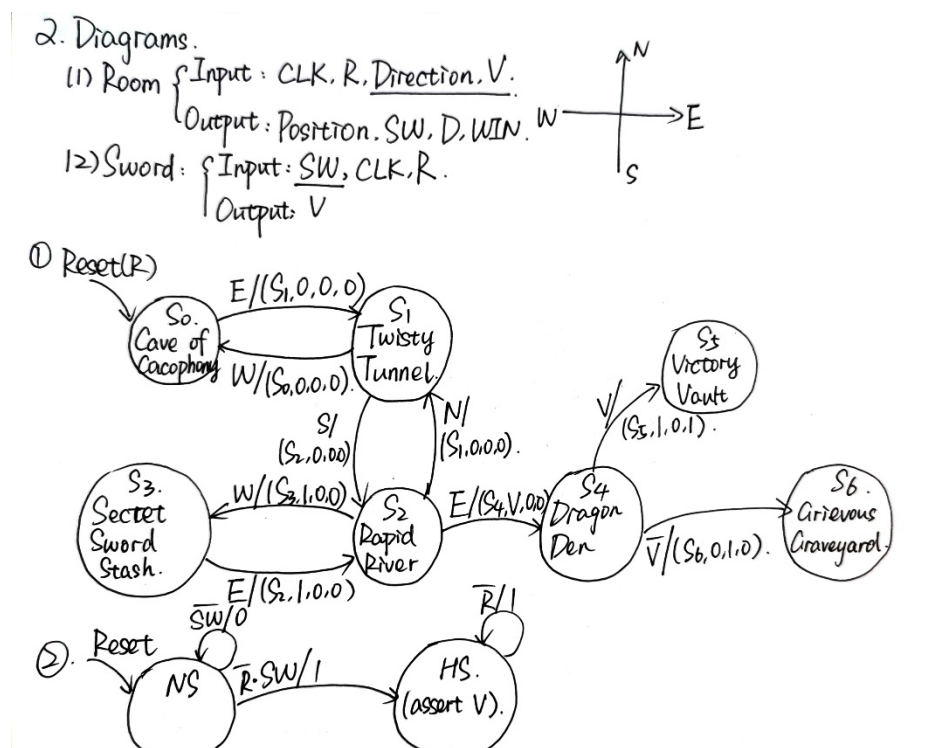 2. Diagrams.
(1) Room { Input : CLK, R, Direction, V.
Output : Position, SW, D, WIN.
(2) Sword : { Input : SW, CLK, R.
Output: V
N
W
E
S
① Reset(R)
S0.
Cave of
Cacophony
E/(S1,0,0,0)
W/(S0,0,0,0).
S1
Twisty
Tunnel.
S/
(S2,0,00)
N/
(S1,0,0,0).
S3.
Sectet
Sword
Stash.
W/(S3,1,0,0)
E/(S2,1,0,0)
S2
Rapid
River
E/(S4,V,0,0)
S4
Dragon
Den
V/
(S5,1,0,1).
S5
Victory
Vault
V̅/(S6,0,1,0).
S6.
Grievous
Graveyard.
②. Reset
NS
S̅W̅/0
R̅·SW/1
HS.
(assert V).
R̅/1